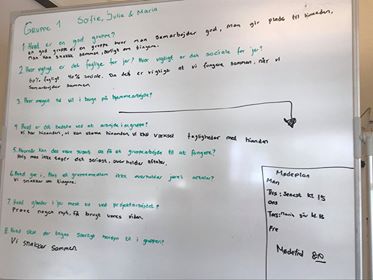 Gruppe 1 Sofie, Julie & Maria
1 Hvad er en god gruppe?
En god gruppe er en gruppe hvor man samarbejder god, man gir plads til hinanden,
Man kan snakke sammen, om tingene.
2 Hvor vigtigt er det faglige for jer? Hvor vigtigt er det sociale for jer?
60% fagligt 40% sociale. Da det er vigtigt at vi fungere sammen, når vi
Samarbejder sammen.
3 Hvor meget tid vil I bruge på hjemmearbejde?
4 Hvad er det bedste ved at arbejde i gruppe?
Vi har hinanden, vi kan støtte hinanden, vi kan faglighederne med hinanden
5 Hvornår kan det være svært at få et gruppearbejde til at fungere?
Hvis man ikke tager det seriøst, overholder aftaler.
6 Hvad gør I, hvis et gruppemedlem ikke overholder jeres aftaler?
Vi snakker om tingene.
7 Hvad glæder I jer mest til ved projektarbejdet?
Prøve noget nyt, få brugt vores viden.
8 Hvad skal der tages særligt hensyn til i gruppen?
Vi snakker sammen
Mødeplan
Man
Tirs: Senest kl 15
Ons
Tors: kl
Fre
Mødetid 8:10